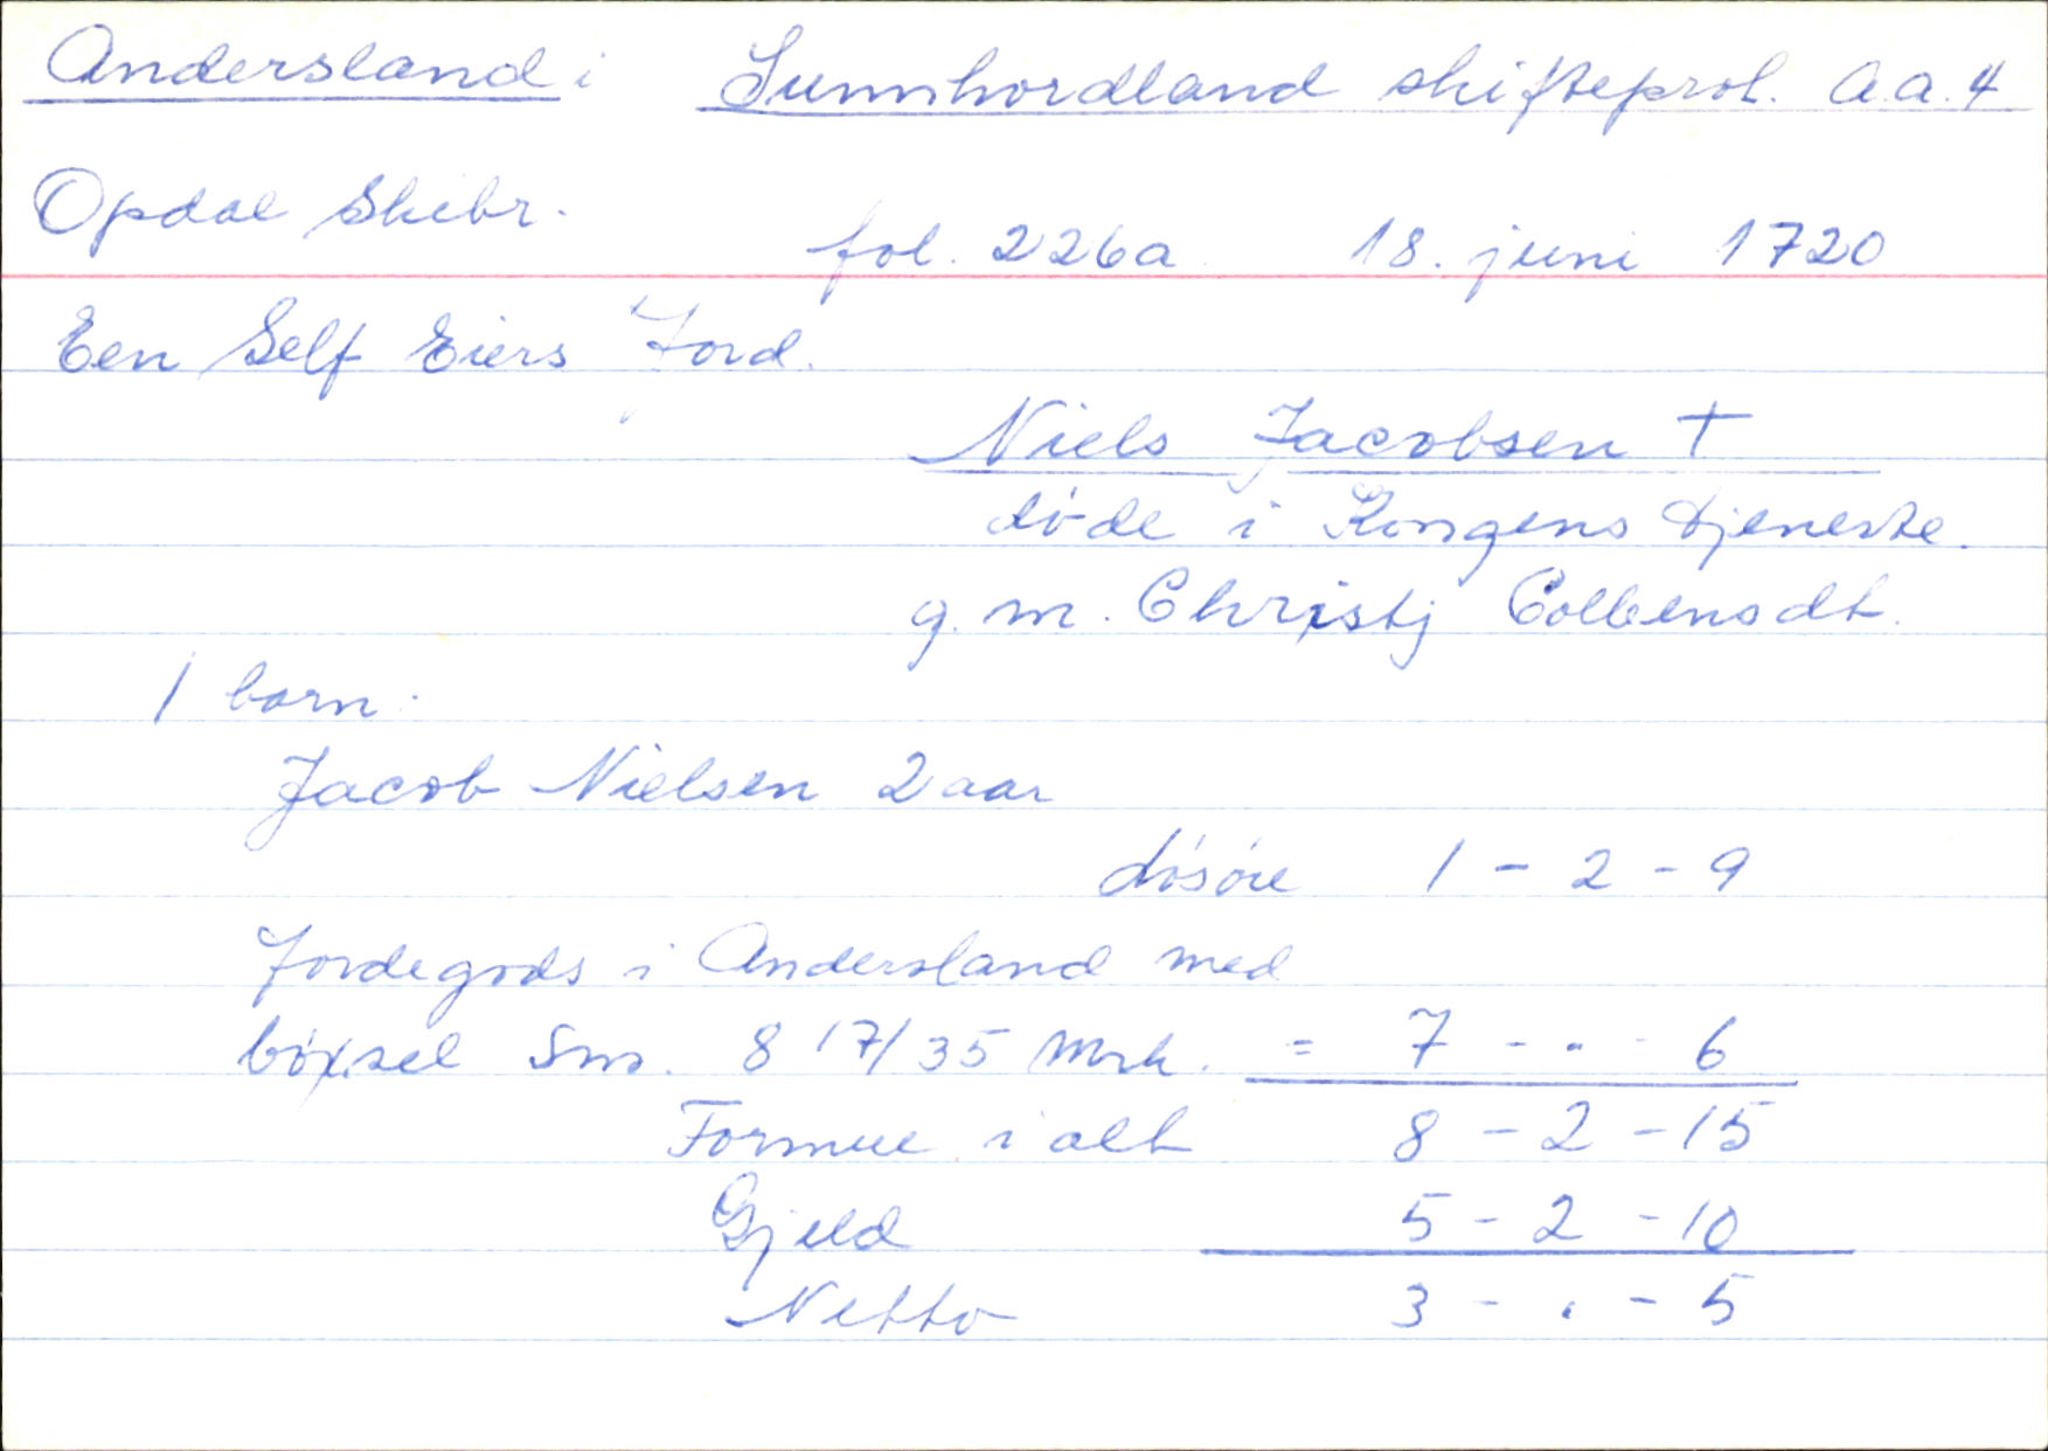 Andersland i Sunnhordland skifteprot. A.a. 4
Opdal Skibr.
fol. 226a 18. juni 1720
Een Self Eiers Jord.
Niels Jacobsen †
døde i Kongens tjeneste.
g. m. Christj Colbensdt.
1 barn:
Jacob Nielsen 2 aar
Løsøre 1 - 2 - 9
Jordegods i Andersland med
bøxsel Sm. 8 17/35 Mrk. = 7 - . - 6
Formue i alt 8 - 2 - 15
Gjeld 5 - 2 - 10
Netto 3 - . - 5